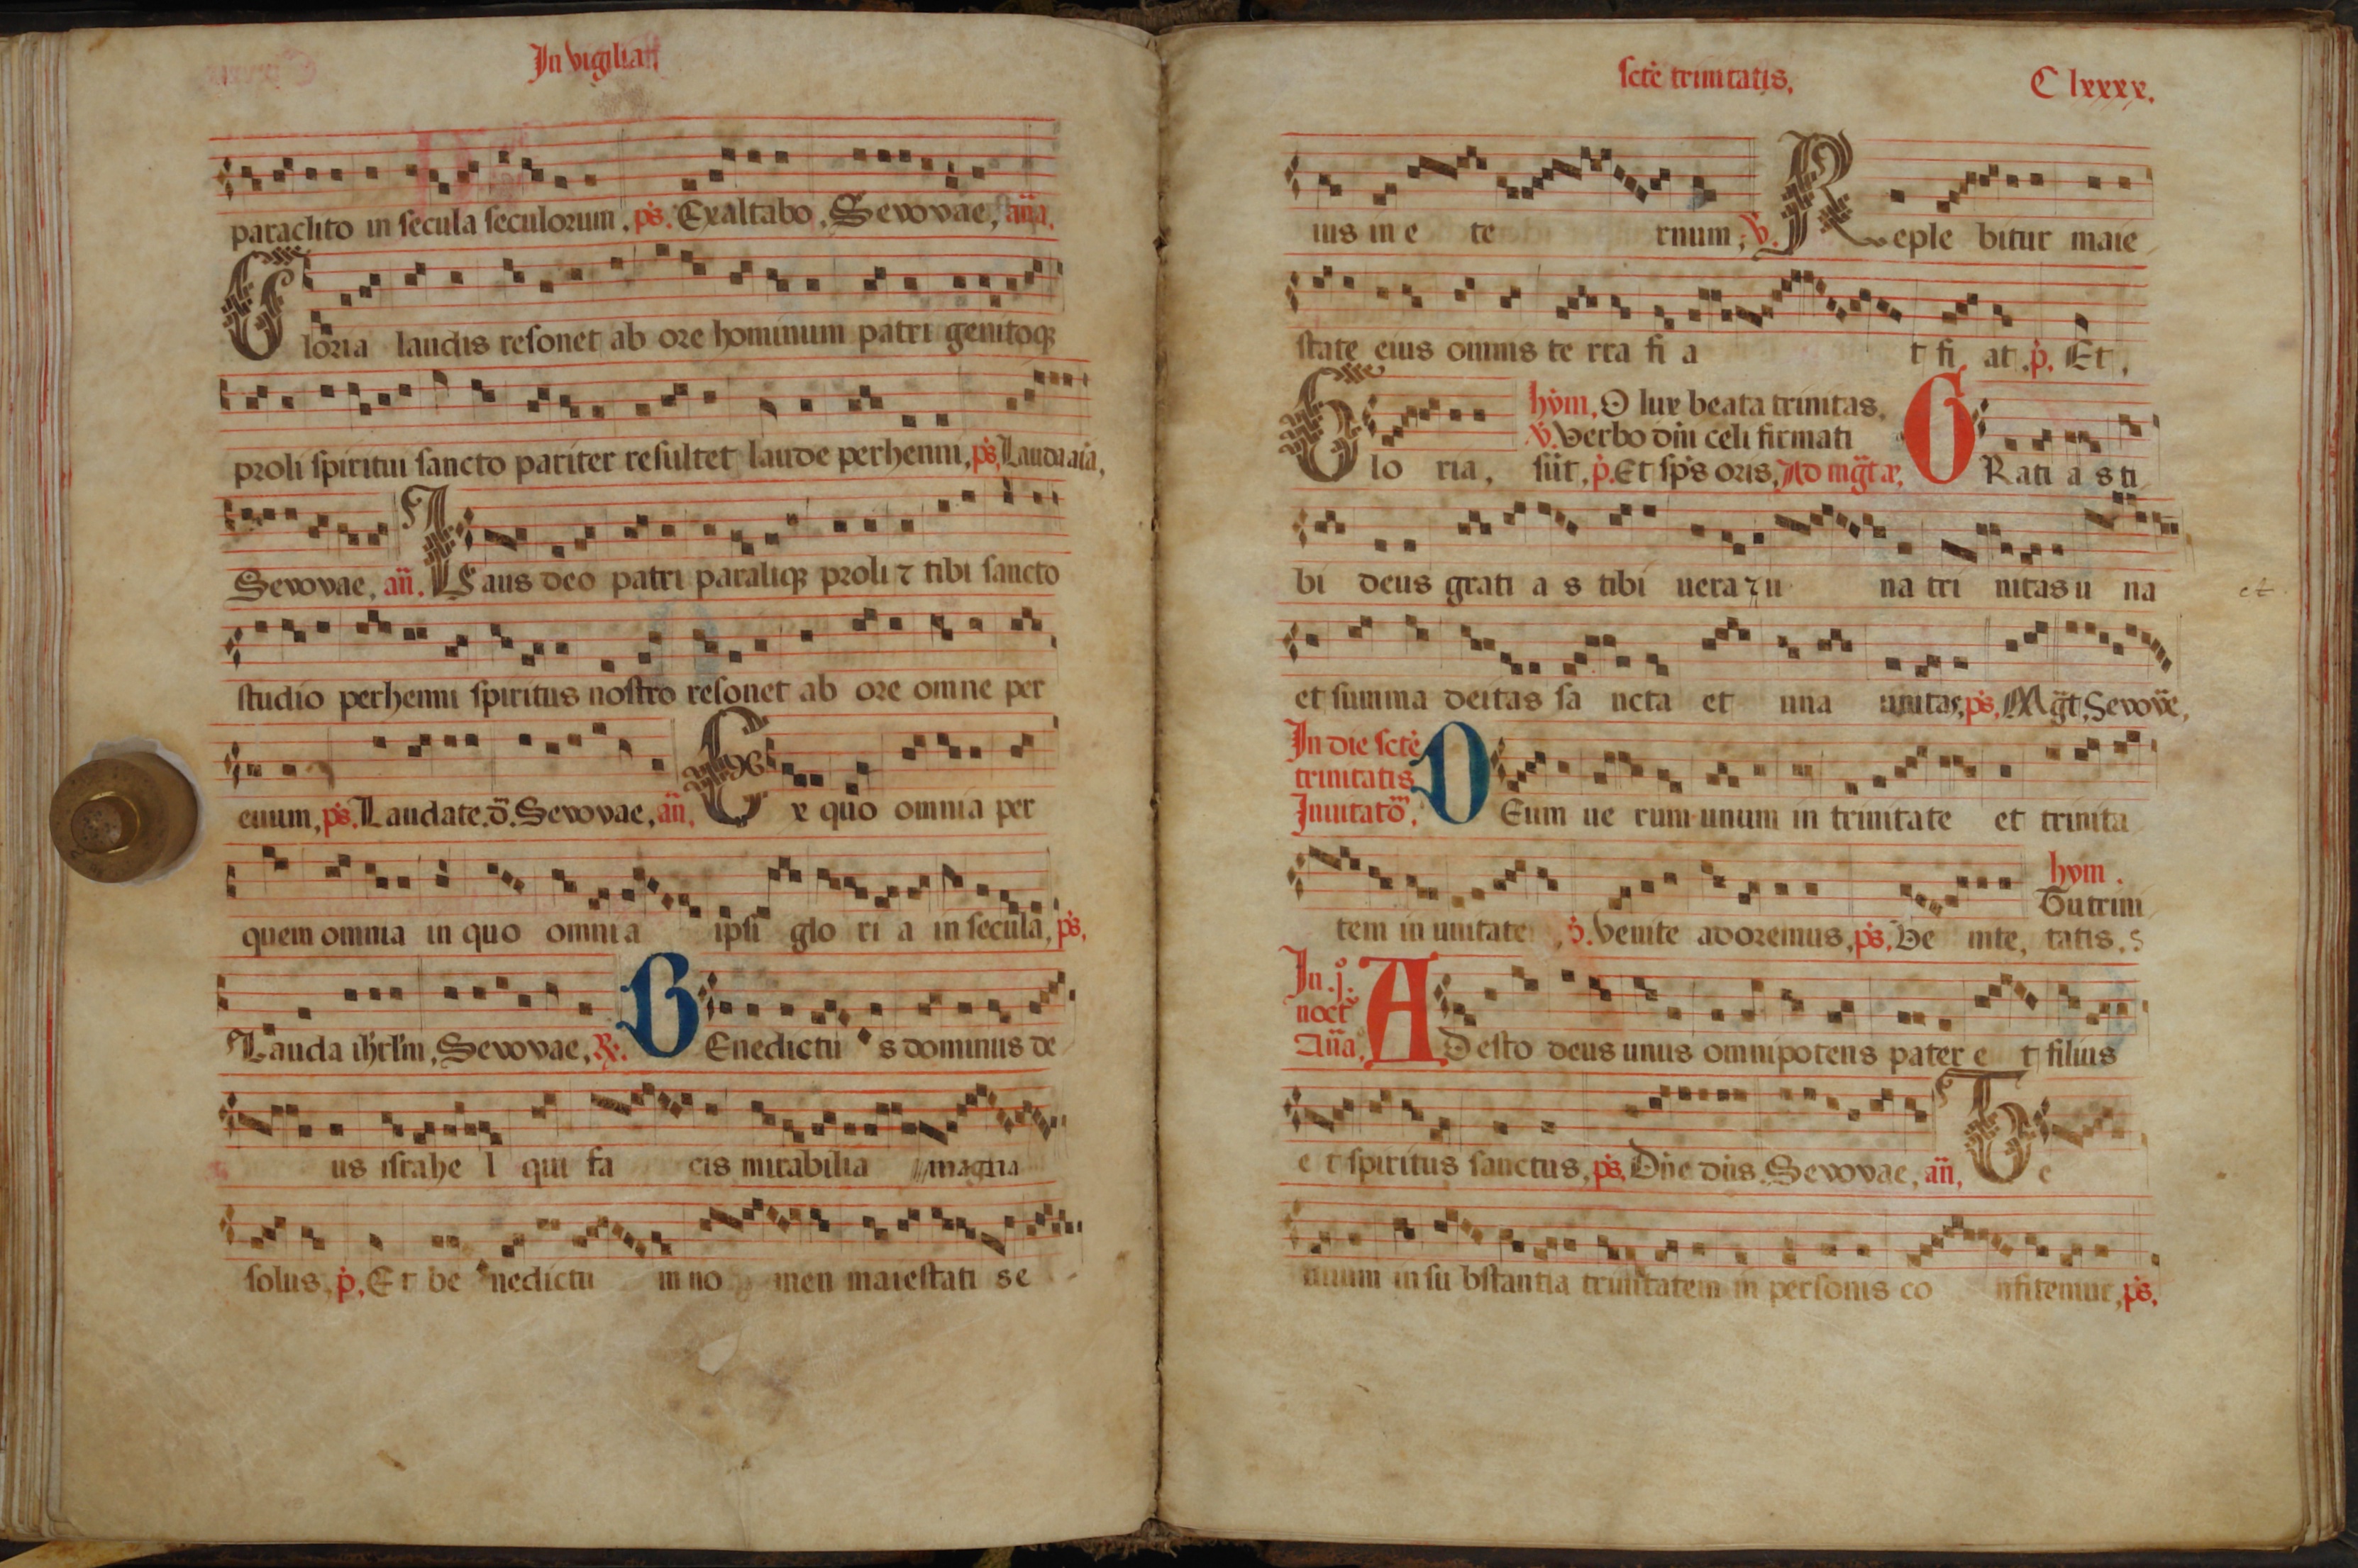 In vigilia
paraclito in secula seculorum. ps. Exaltabo. Sevovae, aña.
Gloria laudis resonet ab ore hominum patri genitoqꝫ
proli spiritui sancto pariter resultet laude perhenni, ps. Lauda aīa,
Sevovae, añ. Laus deo patri paraliqꝫ proli ⁊ tibi sancto
studio perhenni spiritus nostro resonet ab ore omne per
euum, ps. Laudate. d̄. Sevovae, añ. Ex quo omnia per
quem omnia in quo omnia ipsi glo ri a in secula, ps.
Lauda ihrlm, Sevovae, ℟. BEnedictu s dominus de
us israhe l qui fa cis mirabilia magna
solus, p. Et be nedictū in no men maiestati se
scte trinitatis.
C lxxxx.
ius in e te rnum, ℣. Reple bitur maie
state eius omnis te rra fi a t fi at. p. Et,
hym, O lux beata trinitas.
℣. Verbo dñi celi firmati
Glo ria, sūt, p. Et sps oris, Ad mḡt a, GRati a s ti
bi deus grati a s tibi uera ⁊ u na tri nitas u na
et
et summa deitas sa ncta et una unitas, ps. Mḡt, Sevove,
In die scte
trinitatis
Inuitatō. DEum ue rum unum in trinitate et trinita
hym.
Tu trini
tem in unitate, ℣. Venite adoremus, ps. Ve nite, tatis. s
In .j.
noct
Aña, ADesto deus unus omnipotens pater e t filius
e t spiritus sanctus, ps. Dñe dñs. Sevovae, añ, Te
unum in su bstantia trinitatem in personis co nfitemur, ps.